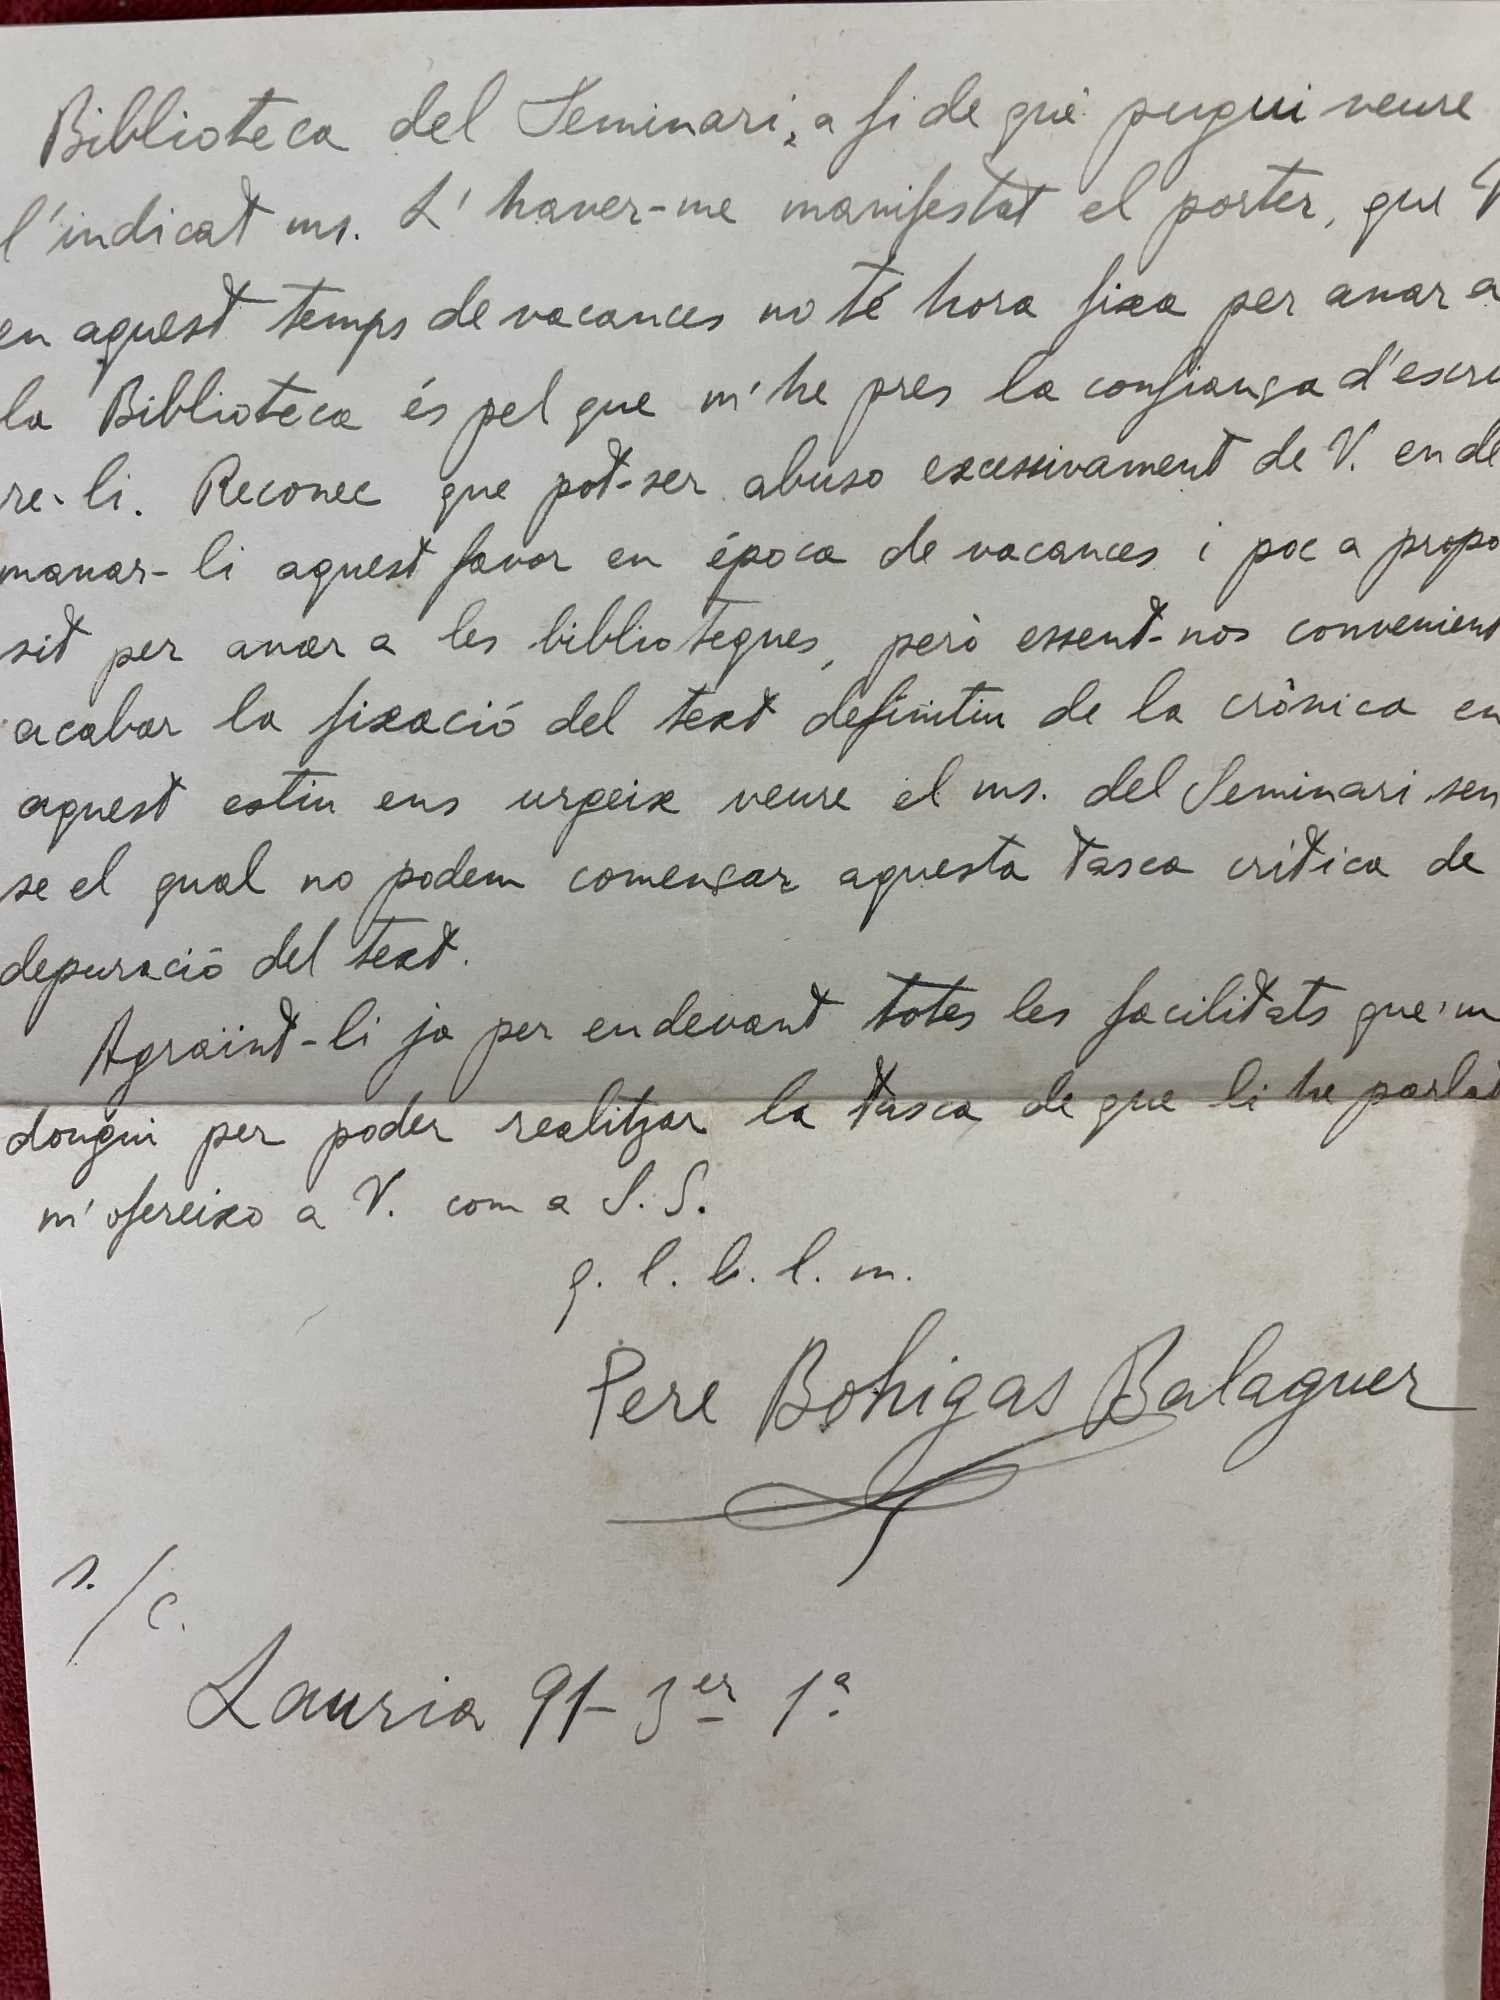 Biblioteca del Seminari, a fi de què pugui veure
l'indicat ms. L'haver-me manifestat el porter, que V
en aquest temps de vacances no té hora fixa per anar a
la Biblioteca és pel que m'he pres la confiança d'escriu
re-li. Reconec que pot-ser abuso excessivament de V. en de
manar-li aquest favor en època de vacances i poc a propo
sit per anar a les biblioteques, però essent-nos convenient
acabar la fixació del text definitiu de la crònica en
aquest estiu ens urgeix veure el ms. del Seminari sen
se el qual no podem començar aquesta tasca crítica de
depuració del text.
Agraïnt-li ja per endevant totes les facilitats que'm
dongui per poder realitzar la tasca de que li he parlat
m'ofereixo a V. com a S. S.
q. l. b. l. m.
Pere Bohigas Balaguer
s./c.
Lauria 91- 3er 1ª